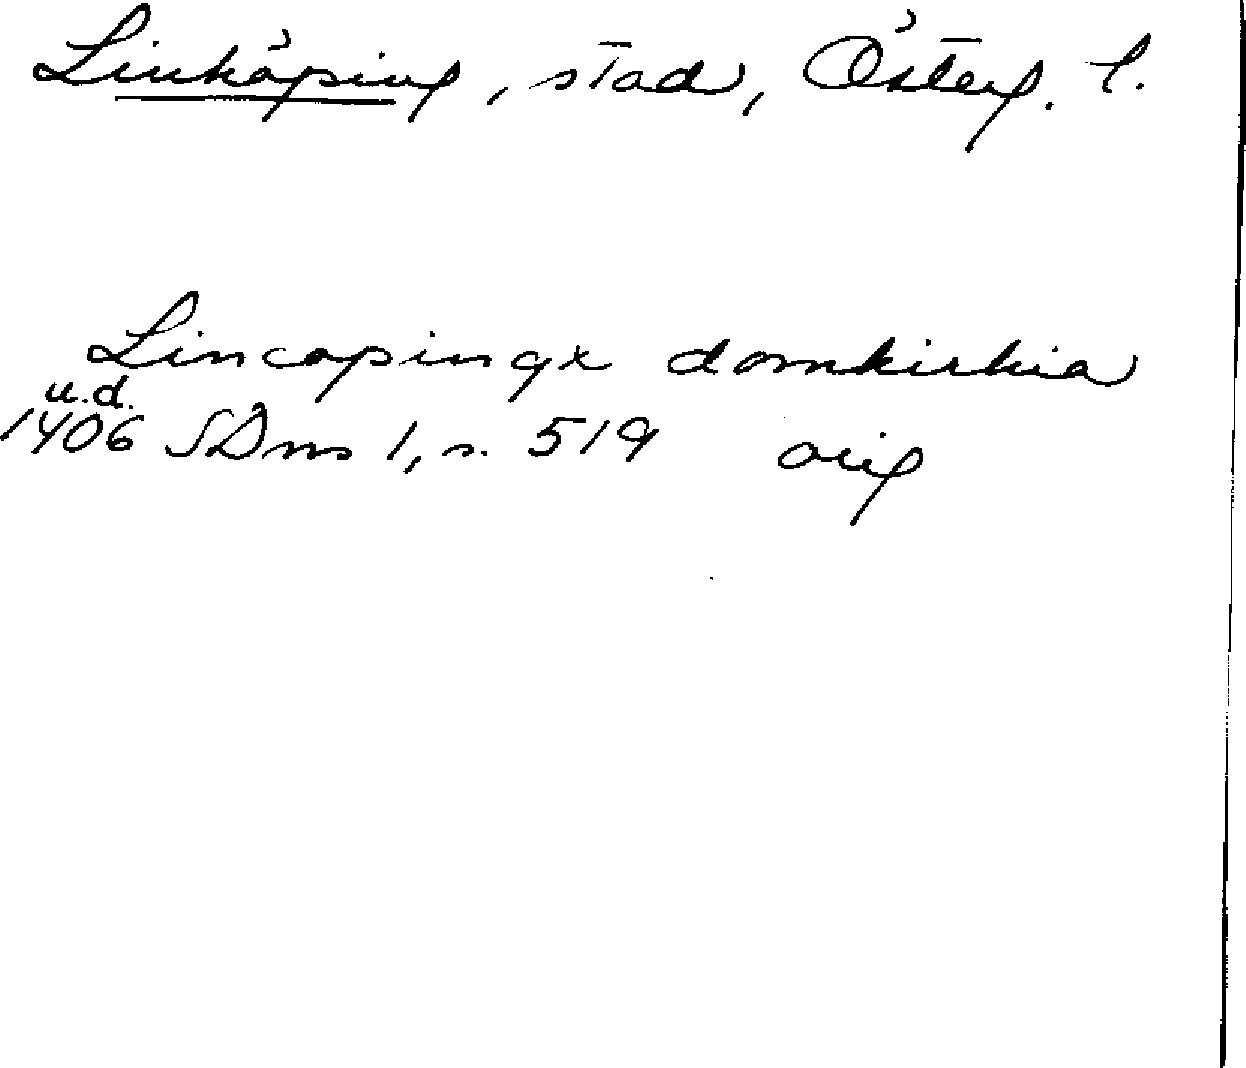 Linköping, stad, Österg. l.
Lincopingx domkirkia
u.d.
1406 SDns 1, s. 519 orig